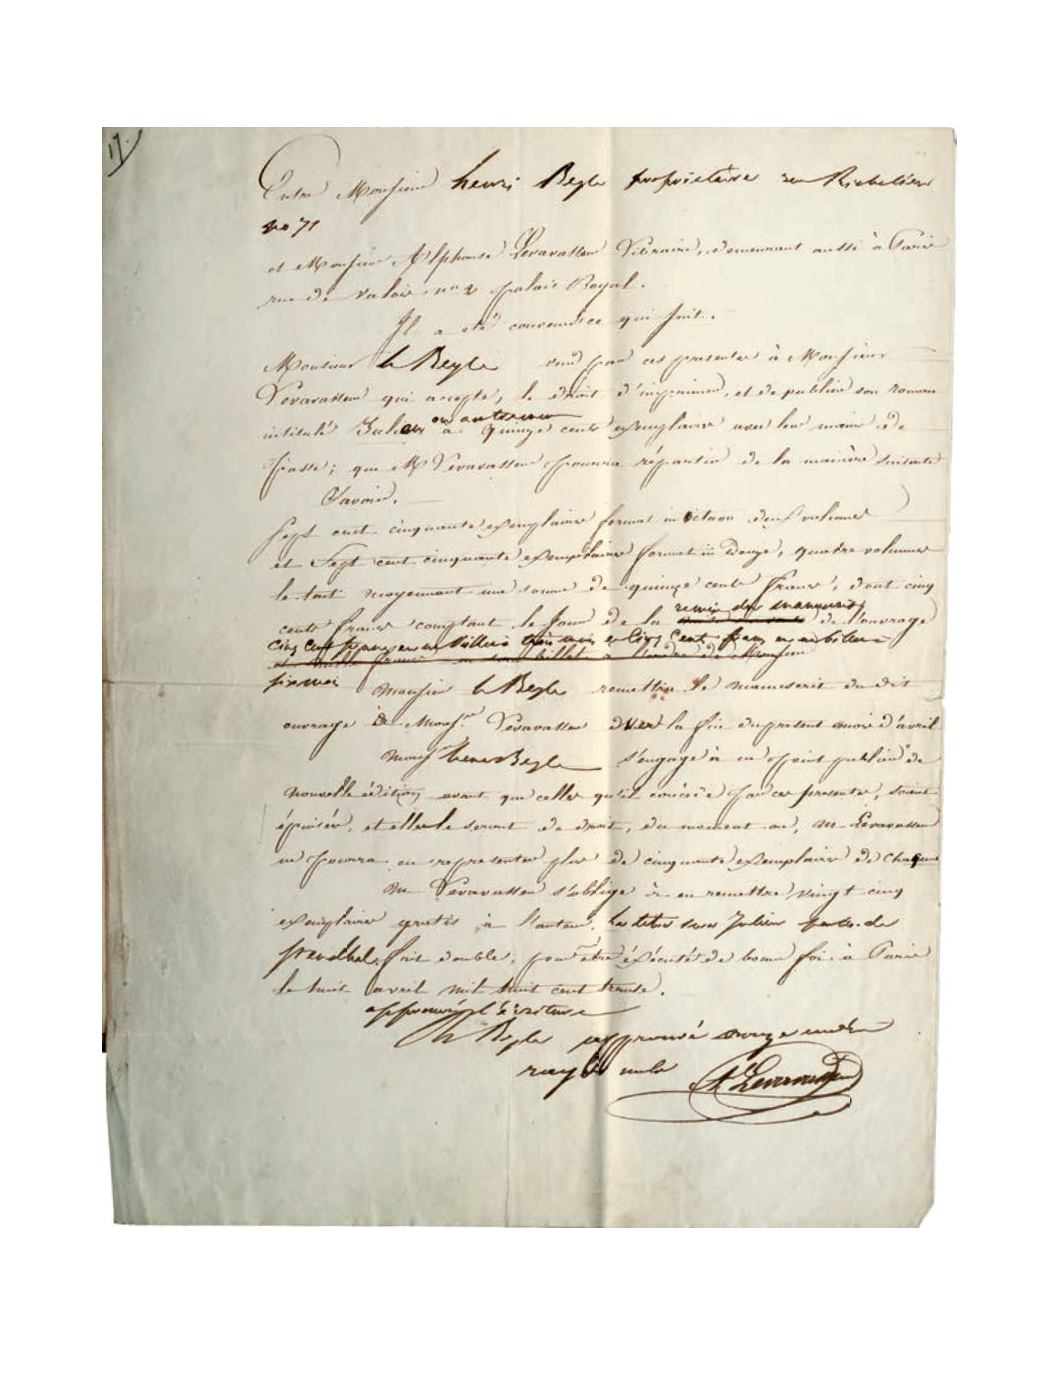 17.
Entre Monsieur henri Beyle propriétaire rue Richelieu
no 71
et Monsieur Alphonse Levavasseur Libraire, demeurant aussi à Paris
rue de Valois no 2 palais Royal.
Il a été convenu ce qui suit.
Monsieur h Beyle vend par ces presentes à Monsieur
Levavasseur qui accepte, le droit d'imprimer, et de publier son roman
ou autrement
intitulé Julien à quinze cents exemplaires avec leur main de
passe; que M Levavasseur pourra répartir de la manière suivante
Savoir.
Sept cent cinquante exemplaires format in octavo deux volumes
et Sept cent cinquante exemplaires format in Douze, quatre volumes
le tout moyennant une somme de quinze cents francs, dont cinq
remise du manuscrit
cents francs comptant le jour de la de l'ouvrage
cinq cent francs en un billet à trois mois et cinq cent francs en un billet à
billet à l'ordre de Monsieur
six mois Monsieur h Beyle remettra le manuscrit du dit
ouvrage à Monsr Levavasseur vers la fin du present mois d'avril
Monsr henri Beyle s'engage à ne point publier de
nouvelle édition avant que celles qu'il concède par ces presentes, soient
épuisées, et elles le seront de droit, du moment où, M. Levavasseur
ne pourra en representer plus de cinquante exemplaires de chaque
M Levavasseur s'oblige à en remettre vingt cinq
exemplaires gratis à l'auteur. Le titre sera Julien par m. de
Stendhal. fait double, pour être éxécuté de bonne foi à Paris
le huit avril mil huit cent trente.
approuvé l'écriture
h Beyle approuvé onze mots
rayés nuls A Levavasseur